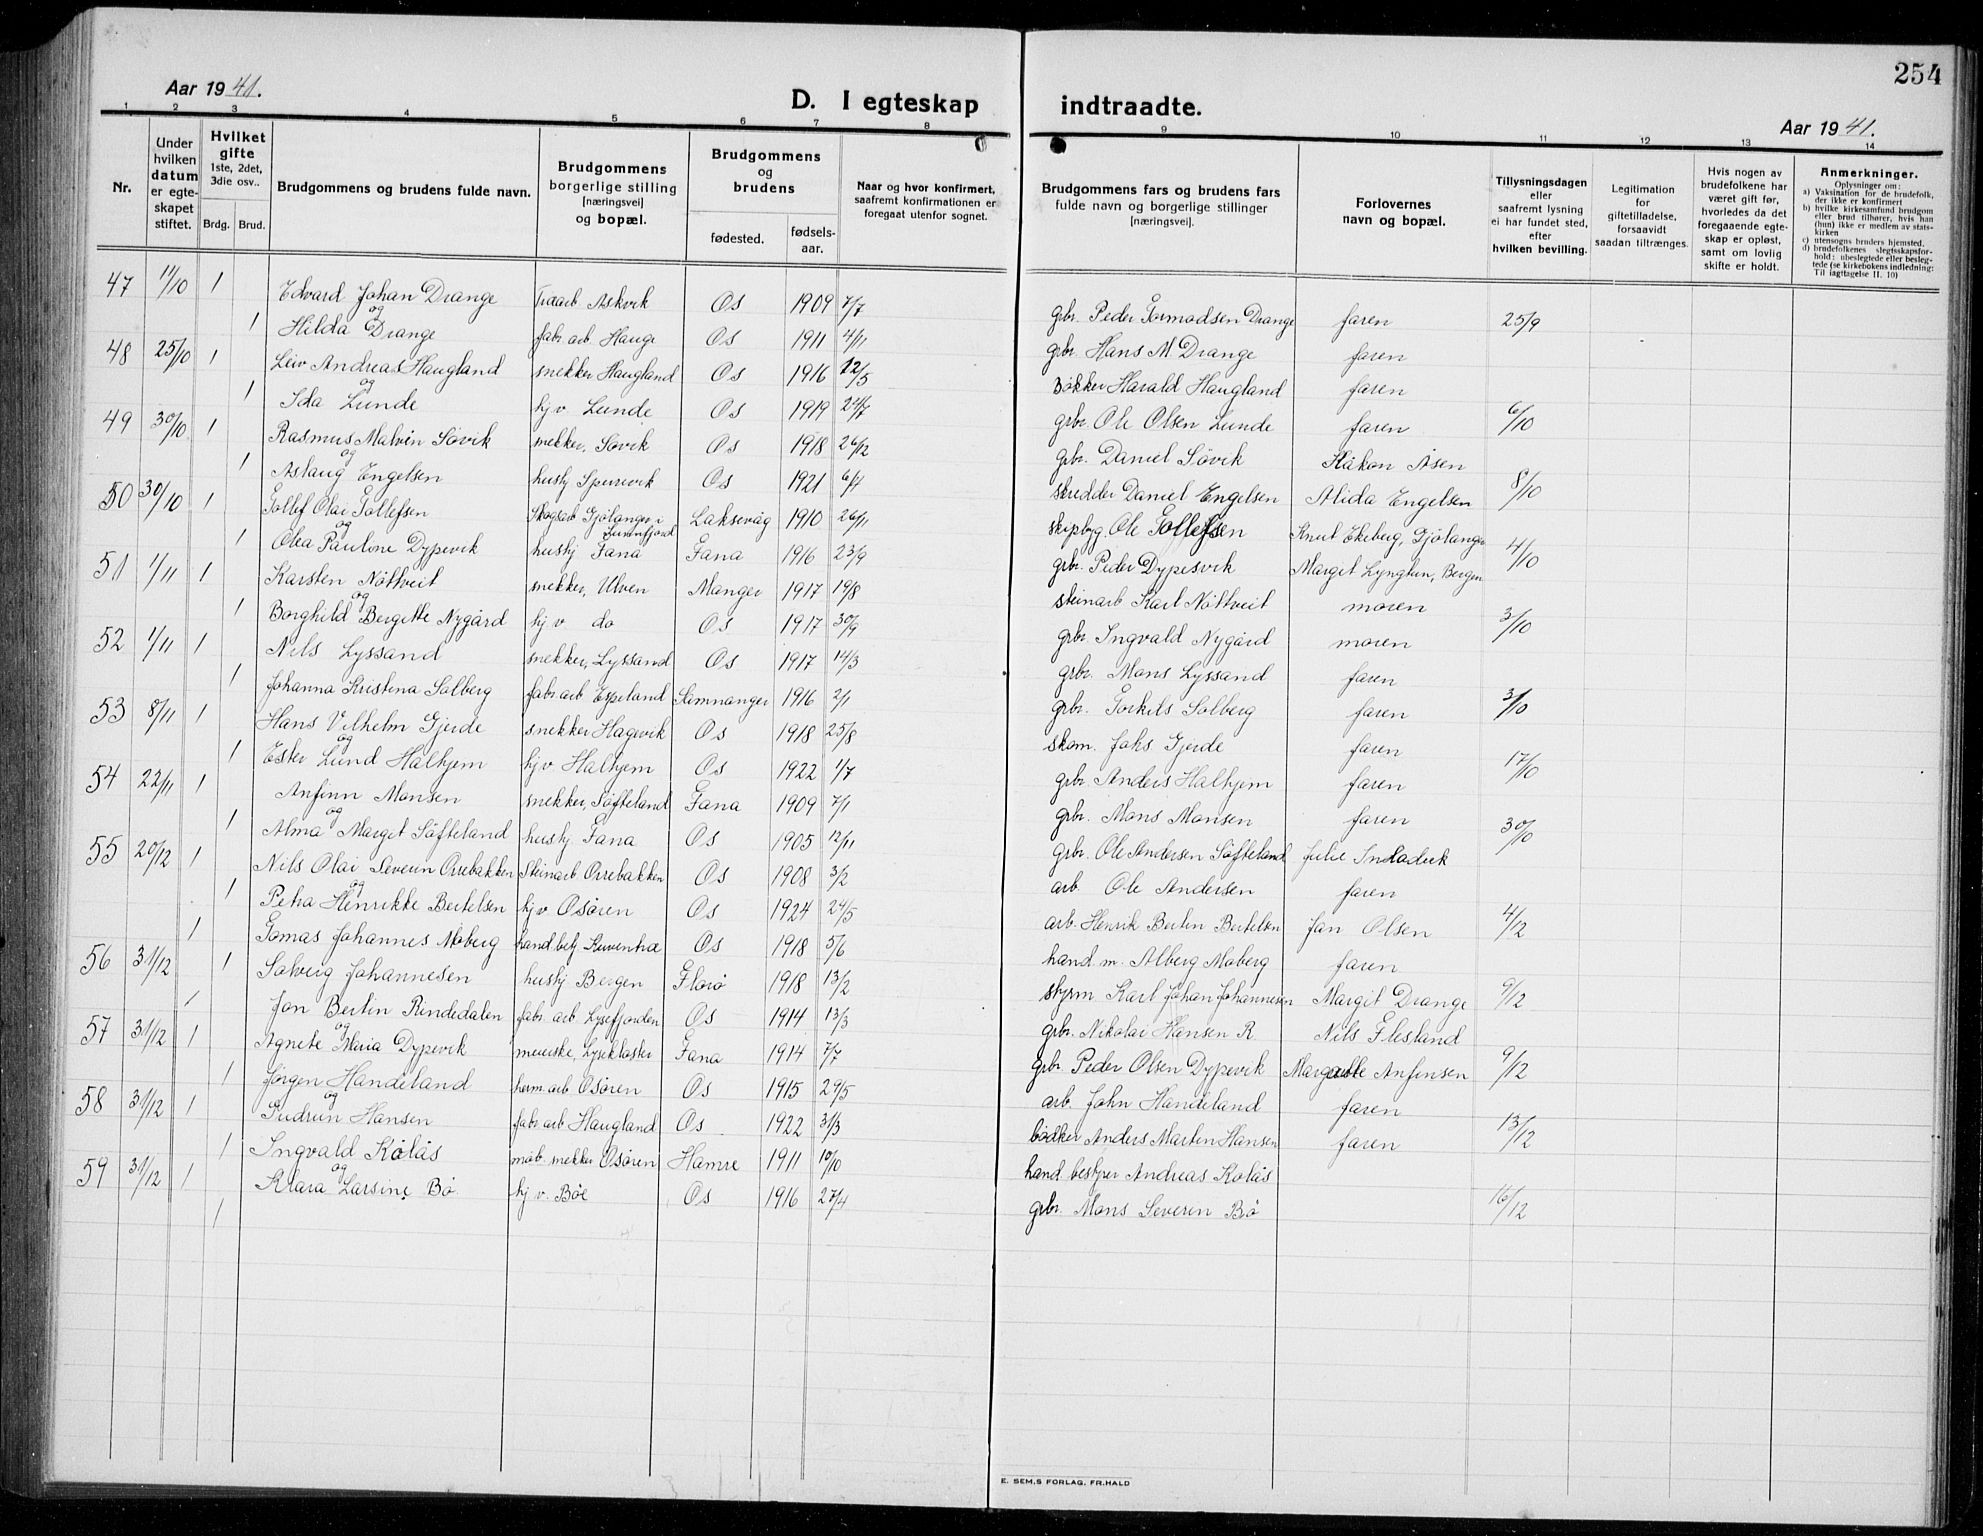 254
Aar 1941.
D. I egteskap indtraadte.
Aar 1941.
1 2 3 4 5 6 7 8 9 10 11 12 13 14
Nr.
Under hvilken datum er egteskapet stiftet.
Hvilket gifte 1ste, 2det, 3die osv..
Brdg. Brud.
Brudgommens og brudens fulde navn.
Brudgommens borgerlige stilling [næringsvei] og bopæl.
Brudgommens og brudens
fødested. fødselsaar.
Naar og hvor konfirmert, saafremt konfirmationen er foregaat utenfor sognet.
Brudgommens fars og brudens fars fulde navn og borgerlige stillinger [næringsvei]
Forlovernes navn og bopæl.
Tillysningsdagen eller saafremt lysning ei har fundet sted, efter hvilken bevilling.
Legitimation for giftetilladelse, forsaavidt saadan tiltrænges.
Hvis nogen av brudefolkene har været gift før, hvorledes da det foregaaende egteskap er opløst, samt om lovlig skifte er holdt.
Anmerkninger.
Oplysninger om:
a) Vaksination for de brudefolk, der ikke er konfirmert
b) hvilke kirkesamfund brudgom eller brud tilhører, hvis han (hun) ikke er medlem av statskirken
c) utensogns bruders hjemsted.
d) brudefolkenes slegtsskapsforhold: ubeslegtede eller beslegtede (se kirkebokens indledning: Til iagttagelse II. 10)
47 11/10 1 Edvard Johan Drange Traarb Askvik Os 1909 7/7 grbr. Peder Tormodsen Drange faren 25/9
og
1 Hilda Drange fabr. arb. Hauge Os 1911 4/11 grbr. Hans M. Drange faren
48 25/10 1 Leiv Andreas Haugland snekker Haugland Os 1916 12/5 Bøkker Harald Haugland faren
og
1 Ida Lunde hj v. Lunde Os 1919 24/7 grbr. Ole Olsen Lunde faren 6/10
49 30/10 1 Rasmus Malvin Søvik snekker, Søvik Os 1918 26/12 grbr. Daniel Søvik Håkon Åsen
og
1 Aslaug Engelsen hushj Spurevik Os 1921 6/7 skredder Daniel Engelsen Alida Engelsen 8/10
50 30/10 1 Tollef Olai Tollefsen Skogsarb Gjølanger i Laksevåg 1910 26/11 skipbyg. Ole Tollefsen Knut Ekeberg, Gjølanger
og
1 Olea Pauline Dypevik hushj Fana Fana 1916 23/9 grbr. Peder Dypesvik Margit Lyngtun, Bergen 4/10
51 1/11 1 Karsten Nøttveit snekker, Ulven Manger 1917 19/8 steinarb Karl Nøttveit moren
og
1 Borghild Bergitte Nygård hj v do Os 1917 30/9 grbr. Ingvald Nygård moren 3/10
52 1/11 1 Nils Lyssand snekker, Lyssand Os 1917 14/3 grbr. Mons Lyssand faren
1 Johanna Kristina Solberg fabr arb Espeland Samnanger 1916 2/1 grbr. Torkils Solberg faren 3/10
53 8/11 1 Hans Vilhelm Gjerde snekker Hagevik Os 1918 25/8 skom. Johs Gjerde faren
og
1 Ester Lund Halhjem hj v. Halhjem Os 1922 1/7 grbr. Anders Halhjem faren 17/10
54 22/11 1 Anfinn Monsen snekker, Søfteland Fana 1909 7/1 grbr. Mons Monsen faren
og
1 Alma Margit Søfteland hushj Fana Os 1905 12/11 grbr. Ole Andersen Søfteland Julie 30/10
55 20/12 1 Nils Olai Severin Orrebakken Steinarb Orrebakken Os 1908 3/2 arb. Ole Andersen faren
og
1 Petra Henrikke Bertelsen hj v Osøren Os 1924 24/5 arb. Henrik Bertin Bertelsen Jan Olsen 4/12
56 31/12 1 Tomas Johannes Moberg hand. betj Os 1918 5/6 hand m. Alberg Moberg faren
1 Solveig Johannesen hushj Bergen Florø 1918 13/2 styrm Karl Johan Johannesen Margit Drange 9/12
57 31/12 1 Jon Bertin Rindedalen fabr. arb Lysefjorden Os 1914 13/3 grbr. Nikolai Hansen R. Nils Flesland
og
1 Agnete Maria Dypevik meierske, Lysekloster Fana 1914 7/7 grbr Peder Olsen Dypevik Margrete Anfinsen 9/12
58 31/12 1 Jørgen Handeland herm. arb Osøren Os 1915 29/5 arb. John Handeland faren
og
1 Gudrun Hansen fabr arb Haugland Os 1922 31/3 bødker Anders Marten Hansen faren 13/12
59 31/12 1 Ingvald Kolås møb. snekker Osøren Hamre 1911 10/10 hand bestyrer Andreas Kolås
og
1 Klara Larsine Bø hj v. Bøe Os 1916 27/4 grbr. Mons Severin Bø 16/12
E. SEM,S FORLAG. FR.HALD